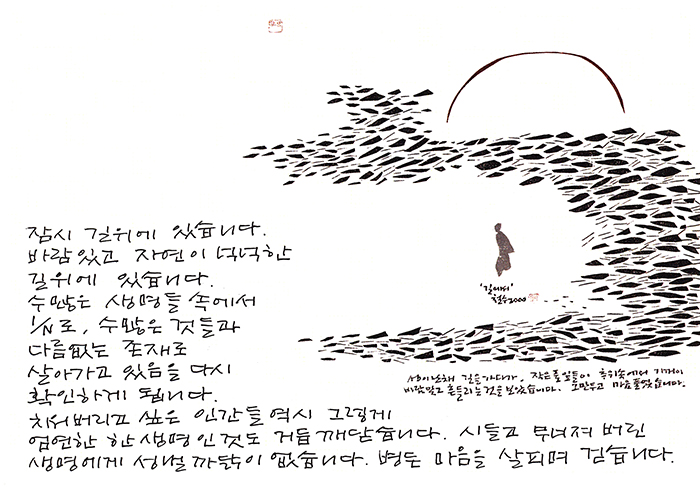 '길에서'
철수2000
성이난채 길을가다가, 작은풀잎들이 추위속에서 기꺼이
바람맞고 흔들리는것을 보았습니다. 그만두고 마음풀었습니다.
잠시 길위에 있습니다.
바람있고 자연이 넉넉한
길위에 있습니다.
수많은 생명들 속에서
1/N로, 수많은 것들과
다름없는 존재로
살아가고 있음을 다시
확인하게 됩니다.
치워버리고 싶은 인간들 역시 그렇게
엄연한 한 생명인것도 거듭 깨닫습니다. 시들고 무너져 버린
생명에게 성낼 까닭이 없습니다. 병든 마음을 살피며 걷습니다.